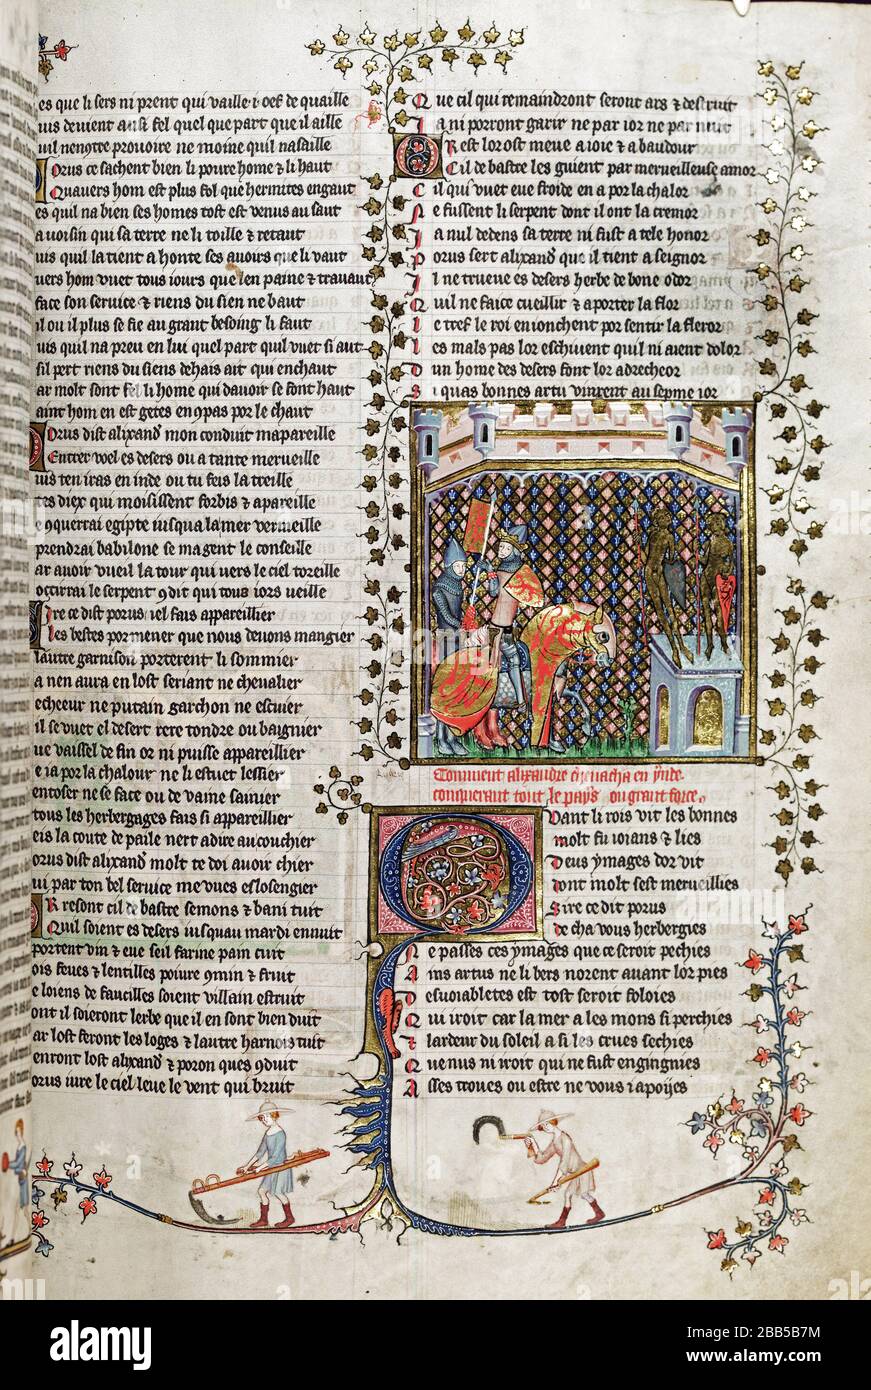 es que li sers ni prent qui vaille i oef de quaille
uis devient ausi fel quel que part que il aille
uil nenytre prouoire ne moine quil nasaille
orus ce sachent bien li poure home & li haut
Quauers hom est plus fel que hermites engaut
es quil na bien ses homes tost est venus au saut
a uoisin qui sa terre ne li toille & retaut
uis quil la tient a honte ses auoirs que li vaut
uers hom vuet tous iours que len paine & travaut
face son service & riens du sien ne baut
il ou il plus se fie au grant besoing li faut
uis quil na preu en lui quel part quil vuet si aut
sil pert riens du siens dehais ait qui en chaut
ar molt sont fel li home qui dauoir se font haut
aint hom en est getes en 9pas por le chaut
Porus dist alixand mon conduit maparelle
Entrer voel es desers ou a tante merueille
uis ten iras en inde ou tu feis la treille
tes diex qui moisissent forbis & apareille
e 9querrai egipte iusqua la mer vermeille
prendrai babilone se ma gent le conseille
ar auoir vueil la tour qui vers le ciel toreille
occirai le serpent 9dit qui tous iors ueille
Sire ce dist porus iel fais appareillier
les bestes por mener que nous deuons mangier
lautre garnison porterent li sommier
a nen aura en lost seriant ne chevalier
echeeur ne putain garchon ne escuier
il se vuet el desert rere tondre ou baignier
ue vaissel de fin or ni puisse appareillier
e ia por la chalour ne li estuet lessier
entoser ne se face ou de vaine sainier
tous les herbergages fais si appareillier
eis la coute de paile nert a dire au couchier
orus dist alixand molt te doi auoir chier
ui par ton bel service me vues eslosengier
Or resont cil de bastre semons & bani tuit
Quil soient es desers iusquau mardi ennuit
portent vin & eue seil farine pain cuit
ois feues & lentilles poiure 9min & fruit
e loiens de faucilles soient villain estruit
ont il soieront lerbe que il en sont bien duit
ar lost feront les loges & lautre harnois tuit
enront lost alixand & poron ques 9duit
orus iure le ciel leue le vent qui bruit
Que cil qui remaindront seront ars & destruit
Ja ni porront garir ne par ior ne par nuit
Or est lor ost meue a ioie & a baudour
Cil de bastre les guient par merveilleuse amor
Cil qui vuet eue froide en a por la chalor
Ne fussent li serpent dont il ont la cremor
Ja nul dedens sa terre ni fust a tele honor
Porus sert alixand que il tient a seignor
Il ne trueue es desers herbe de bone odor
Quil ne face cueillir & aporter la flor
Le tref le roi enionchent por sentir la fleror
Les mals pas lor eschiuent quil ni aient dolor
Dun home des desers sont lor adrecheor
Si quas bonnes artu vinrent au sepme ior
Comment alixandre cheuacha en ynde
conquerant tout le pays ou grant force.
Quant li rois vit les bonnes
molt fu ioians & lies
Deus ymages dor vit
dont molt sest merueillies
Sire ce dit porus
de cha vous herbergies
Ne passes ces ymages que ce seroit pechies
Ains artus ne libers norent auant lor pies
Desuoiabletes est tost seroit foloies
Qui iroit car la mer a les mons si perchies
& lardeur du soleil a si les crues sechies
Que nus ni iroit qui ne fust engingnies
Asses troues ou estre ne vous i apoyes
alamy
Image ID: 2BB5B7M
www.alamy.com